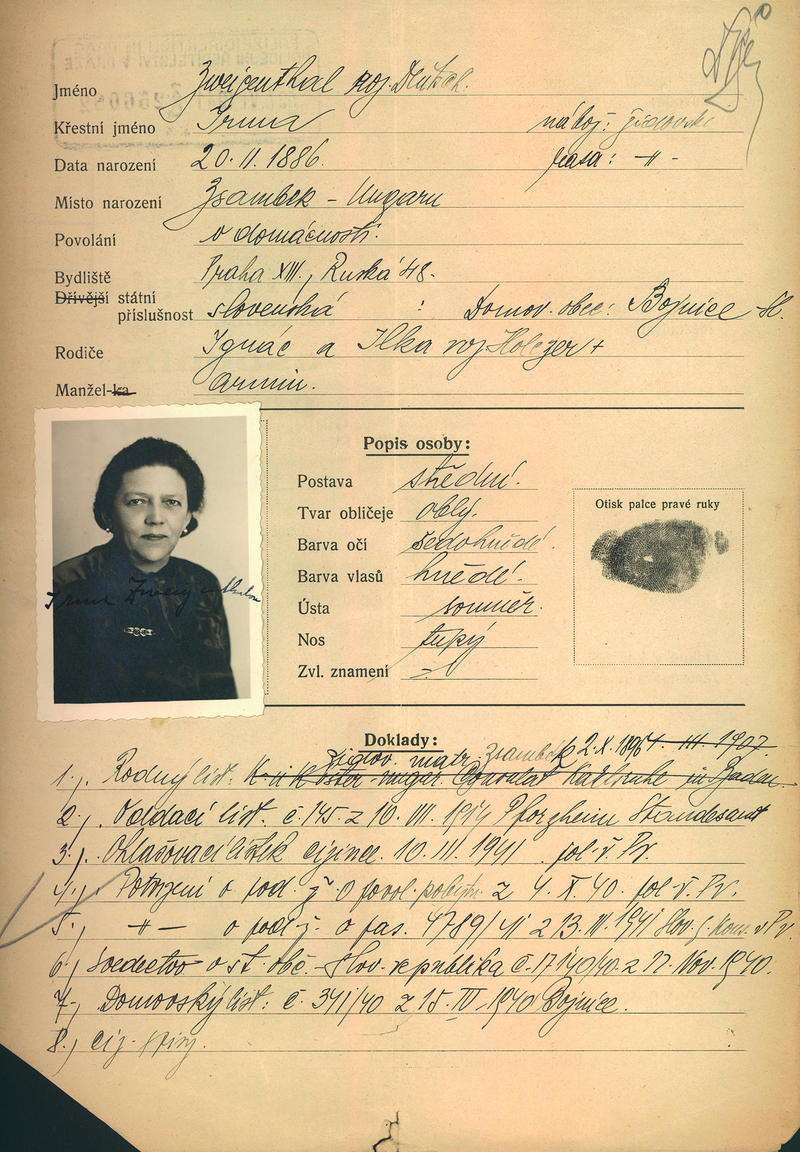 Jméno Zweigenthal roz. Deutsch.
Křestní jméno Irma nábož: židovské
Data narození 20. II. 1886. rasa: -〃-
Místo narození Zsambek - Ungarn
Povolání v domácnosti.
Bydliště Praha XIII., Ruská 48.
Dřívější státní
příslušnost slovenská : Domov. obec: Bojnice Sl.
Rodiče Ignác a Ilka roz. Holczer +
Manžel-ka Armin.
Popis osoby:
Postava střední.
Tvar obličeje oblý.
Barva očí šedohnědé.
Barva vlasů hnědé.
Ústa souměr.
Nos tupý
Zvl. znamení =
Otisk palce pravé ruky
Irma Zweigenthalova
Doklady:
židov. matr. Zsambék 2. X. 189
1.). Rodný list. K. u. K. Öster-ungar. Consulat Karlsruhe in Baden
III. 1907
2.). Oddací list. č. 145. z 10. VIII. 1914 Pforzheim Standesamt
3.). Ohlašovací lístek cizince. 10. III. 1941. pol. ř. Pr.
4.). Potvrzení o pod. ž. o povol. pobytu z 4. X. 40. pol. ř. Pr.
5.) -〃- o pod. ž. o pas. 4789/41 z 13. III. 1941 Slov. g. Kon. v Pr.
6.) Svedectvo o st. obč. - Slov. republika č. 17140/40. z 22. Nov. 1940.
7.) Domovský list: č. 341/40 z 15. IV. 1940 Bojnice.
8.)